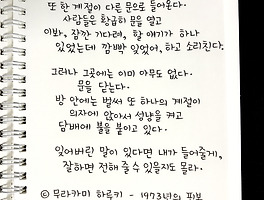 또 한 계절이 다른 문으로 들어온다.
사람들은 황급히 문을 열고
이봐, 잠깐 기다려, 할 얘기가 하나
있었는데 깜빡 잊었어, 하고 소리친다.
그러나 그곳에는 이미 아무도 없다.
문을 닫는다.
방 안에는 벌써 또 하나의 계절이
의자에 앉아서 성냥을 켜고
담배에 불을 붙이고 있다.
잊어버린 말이 있다면 내가 들어줄게,
잘하면 전해 줄 수 있을지도 몰라.
ⓒ 무라카미 하루키 - 1973년의 핀볼